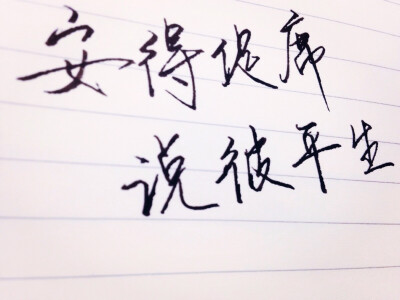 安得促席
说彼平生